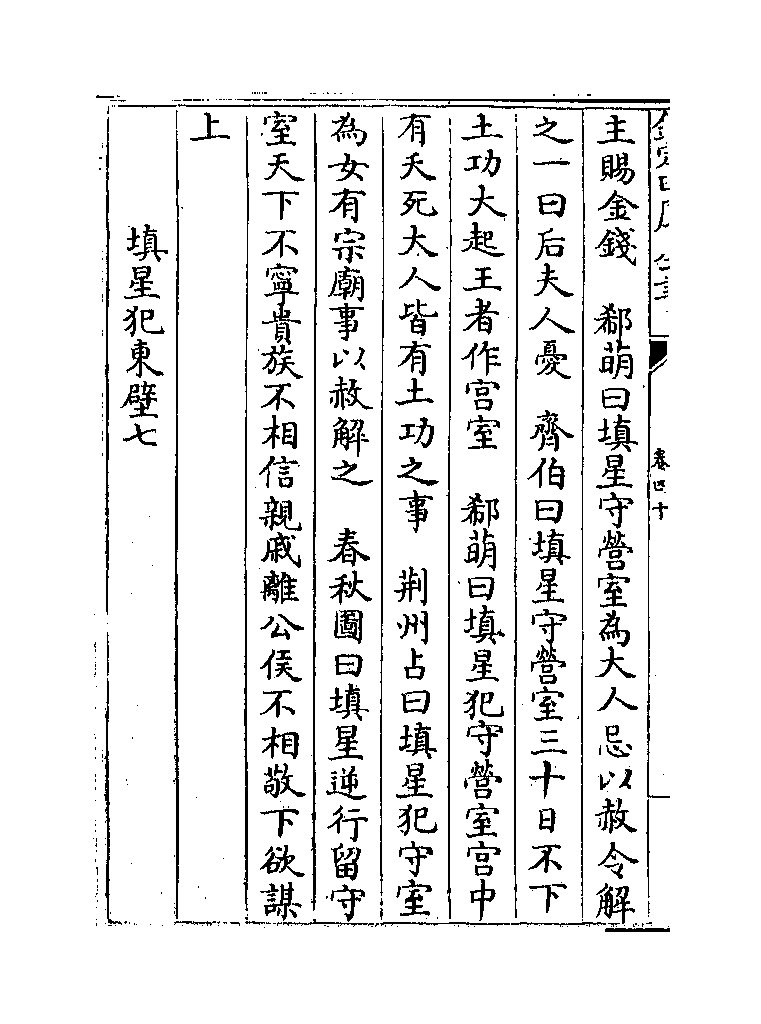 主賜金錢　郗萌曰填星守營室為大人忌以赦令解
之一曰后夫人憂　齊伯曰填星守營室三十日不下
土功大起王者作宫室　郗萌曰填星犯守營室宫中
有夭死大人皆有土功之事　荆州占曰填星犯守室
為女有宗廟事以赦解之　春秋圖曰填星逆行留守
室天下不寧貴族不相信親戚離公侯不相敬下欲謀
上
填星犯東壁七
卷四十